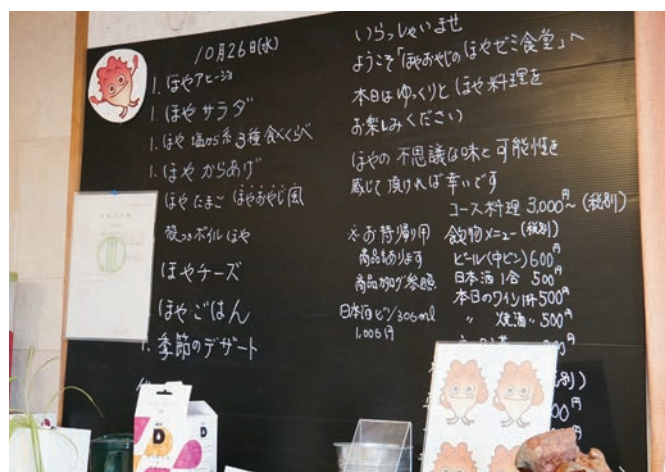 10月26日(水)
1. ほやアヒージョ
1. ほや サラダ
1. ほや 塩から系 3種 食べくらべ
1. ほや からあげ
ほや たまご ほやおやじ風
殻つきボイル ほや
ほやチーズ
ほやごはん
1. 季節のデザート
いらっしゃいませ
ようこそ「ほやおやじの ほやゼミ食堂」へ
本日は ゆっくりと ほや料理を
お楽しみください
ほやの 不思議な味と 可能性を
感じて 頂ければ 幸いです
コース料理 3,000円〜(税別)
お持帰り用
商品もあります
商品カタログ参照
日本酒ビン/300ml
1,006円
飲物メニュー(税別)
ビール(中ビン)600円
日本酒 1合 500円
本日のワイン1杯500円
〃 焼酎 〃 500円
D
D